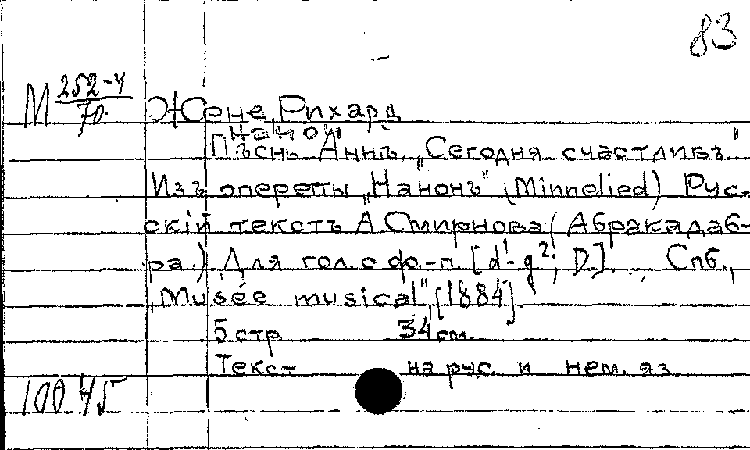 83
М 252-4/70 Жене, Рихард
Нанон
Пѣснь Анны „Сегодня счастливъ"
Изъ оперетты „Нанонъ" (Minnelied) Рус-
скій текстъ А. Смирнова (Абракадаб-
ра.) Для гол. с ф-п. [d¹-g²; D]. Спб.,
„Musée musical" [1884].
5 стр 34 см.
Текст на рус. и нем. яз.
100 45